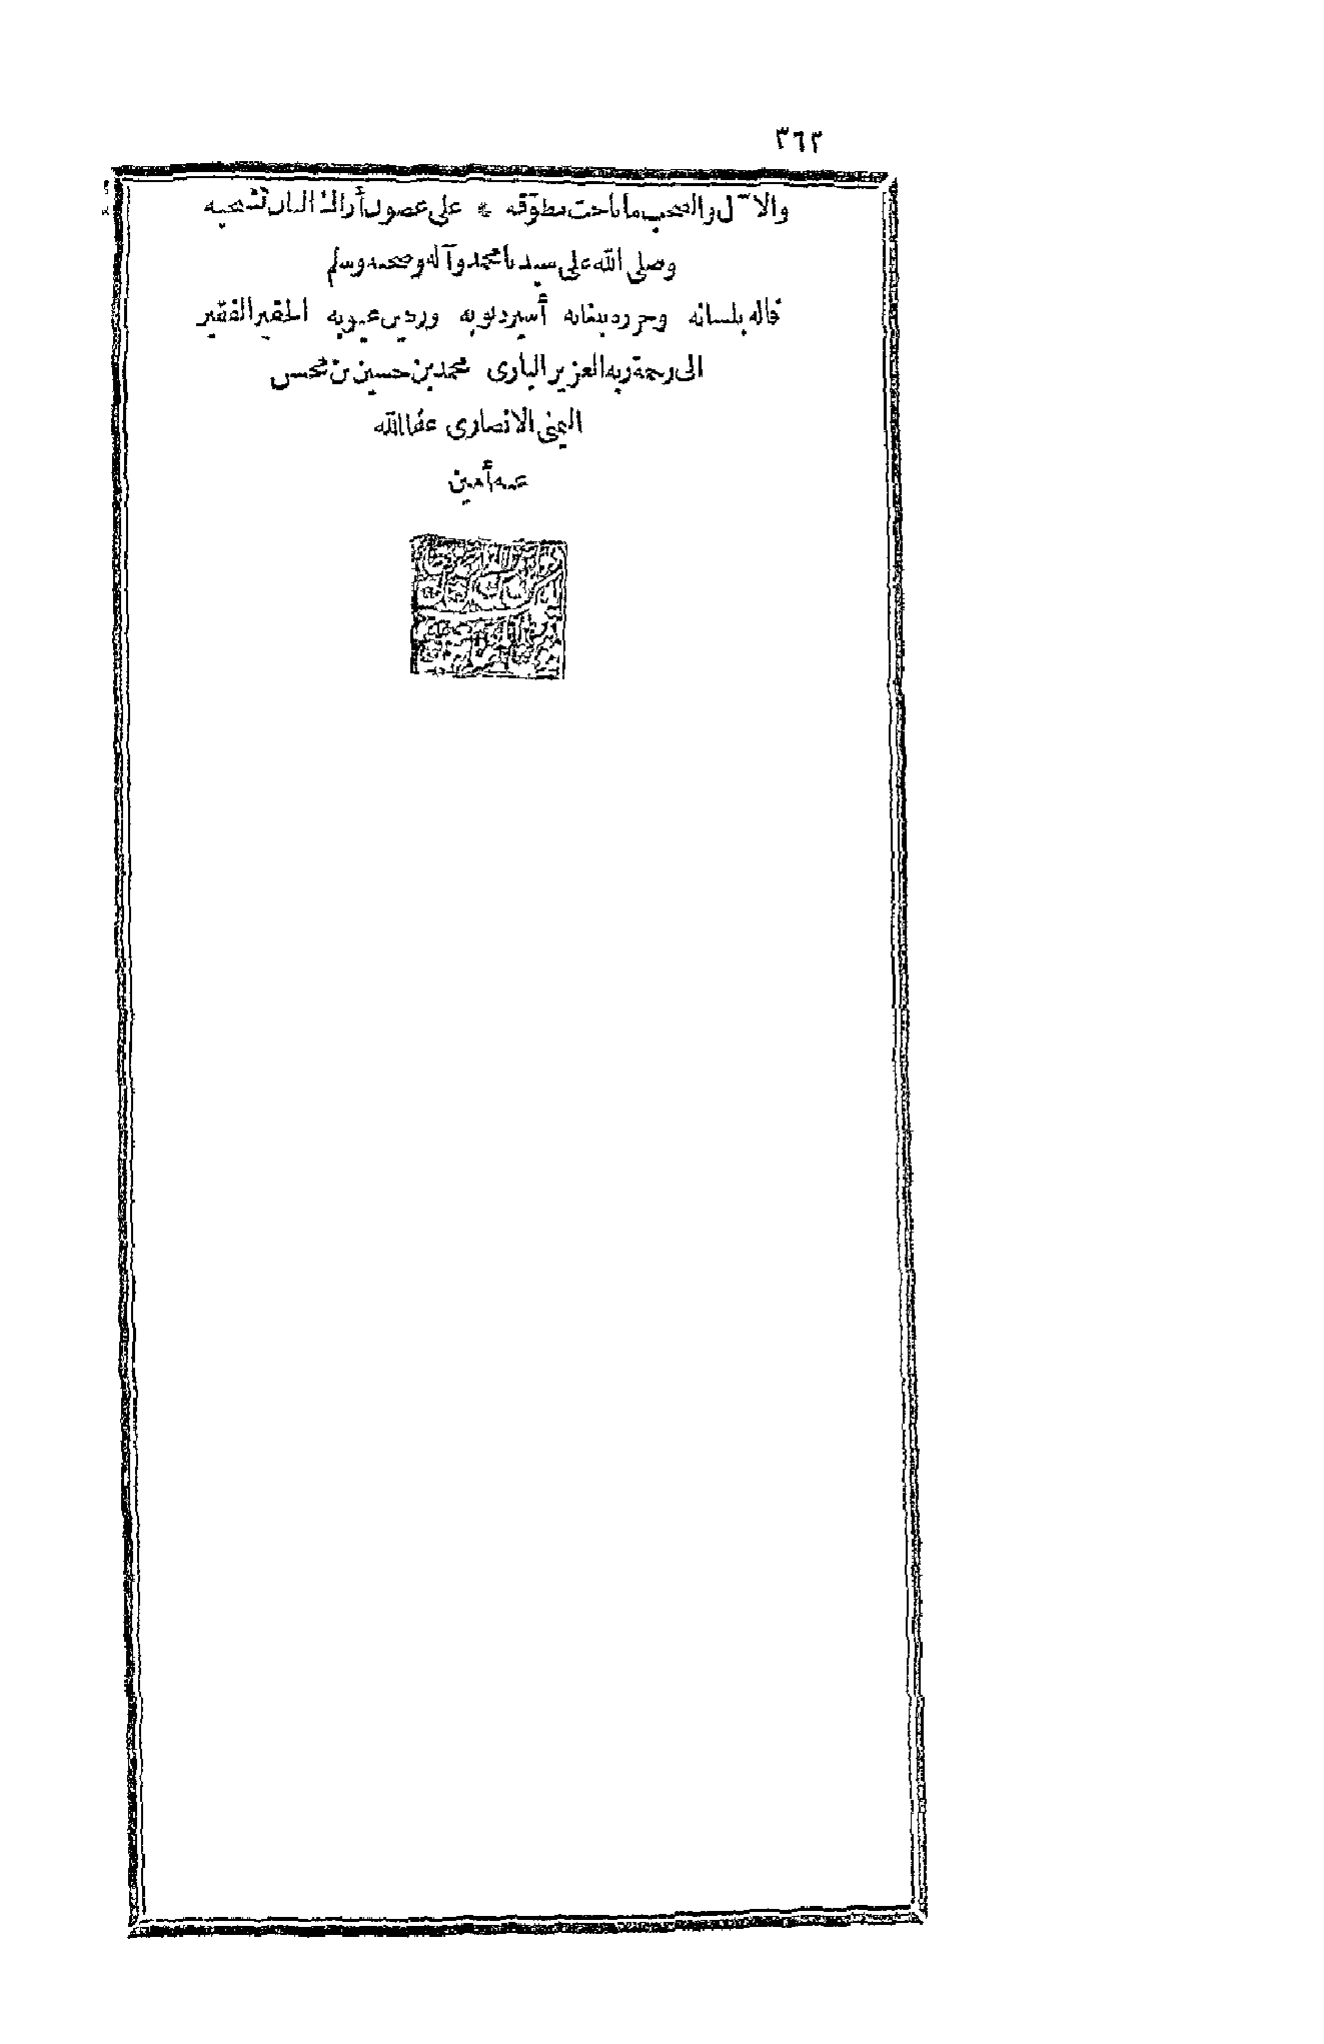 ٣٦٣
والآل والصحب ما ناحت مطوّقه * على غصون أراك البان تشجيه
وصلى الله على سيدنا محمد وآله وصحبه وسلم
قاله بلسانه وحرره ببنانه أسير ذنوبه ورهين عيوبه الحقير الفقير
الى رحمة ربه العزيز البارى محمد بن حسين بن محسن
اليمنى الانصارى عفا الله
عنه أمين